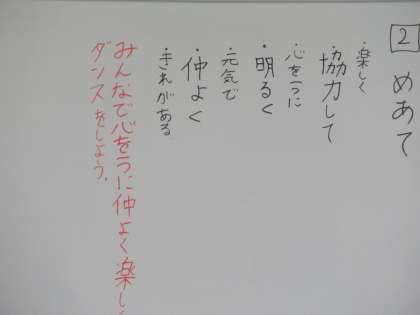 2 めあて
・楽しく
・協力して
・心を一つに
・明るく
・元気で
・仲よく
・きれがある
みんなで心を一つに仲よく楽しく
ダンスをしよう。